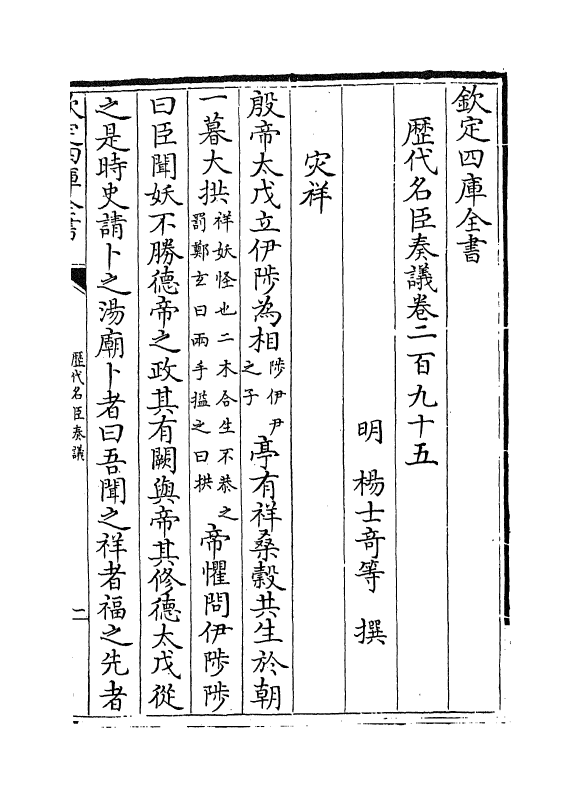 欽定四庫全書
歷代名臣奏議卷二百九十五
明 楊士奇等 撰
灾祥
殷帝太戊立伊陟為相陟伊尹之子亭有祥桑榖共生於朝
一暮大拱祥妖怪也二木合生不恭之罰鄭玄曰兩手搤之曰拱帝懼問伊陟陟
曰臣聞妖不勝德帝之政其有闕與帝其修德太戊從
之是時史請卜之湯廟卜者曰吾聞之祥者福之先者
歷代名臣奏議